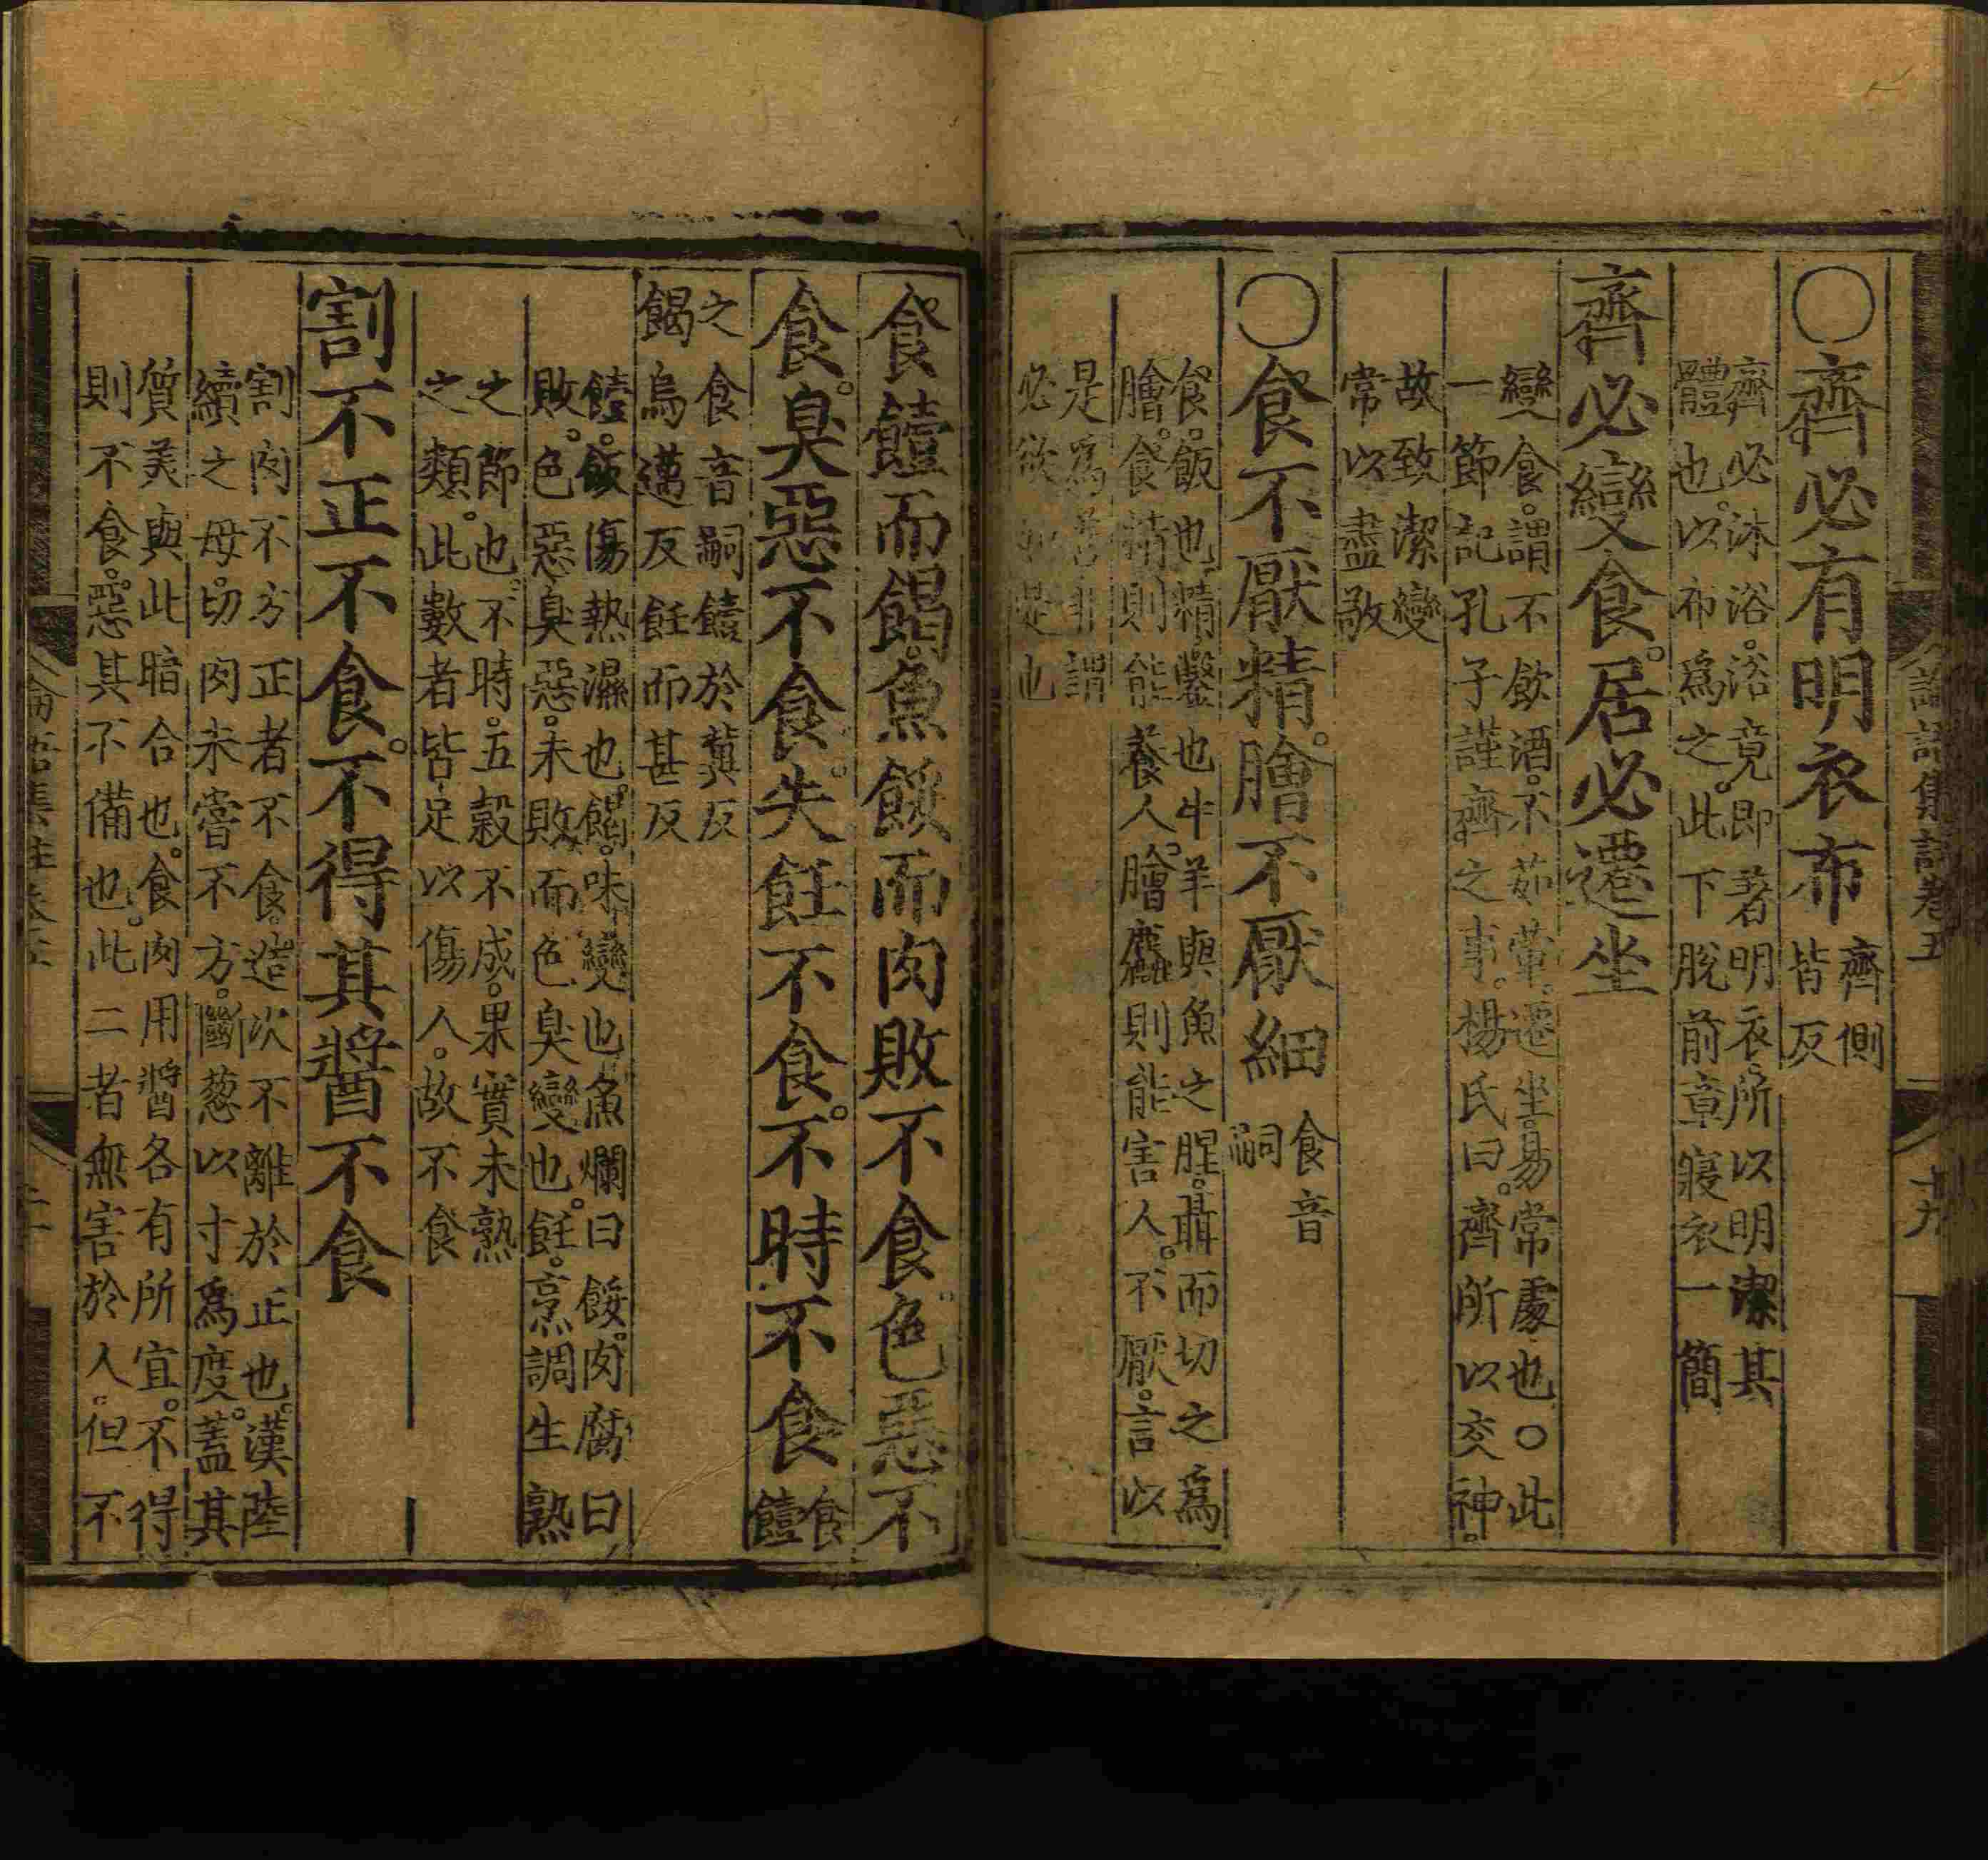 ○齊必有明衣布齊側
皆反
齊必沐浴。浴竟即著明衣。所以明潔其
體也。以布爲之。此下脫前章寢衣一簡
齊必變食。居必遷坐
變食。謂不飲酒。不茹葷。遷坐。易常處也○此
一節記孔子謹齊之事。楊氏曰。齊所以交神。
故致潔變
常以盡敬
○食不厭精。膾不厭細食音
嗣
食。飯也。精。鑿也。牛羊與魚之腥。聶而切之爲
膾。食精則能養人。膾麤則能害人。不厭。言以
是爲善。非謂
必欲如是也
論語集註卷五
十九
食饐而餲。魚餒而肉敗不食。色惡不
食。臭惡不食。失飪不食。不時不食食
饐
之食音嗣饐於冀反
餲烏邁反飪而甚反
饐。飯傷熱濕也。餲。味變也。魚爛曰餒。肉腐曰
敗。色惡臭惡。未敗而色臭變也。飪。烹調生熟
之節也。不時。五穀不成。果實未熟
之類。此數者皆足以傷人。故不食
割不正不食。不得其醬不食
割肉不方正者不食。造次不離於正也。漢陸
續之母。切肉未嘗不方。斷葱以寸爲度。蓋其
質美與此暗合也。食肉用醬各有所宜。不得
則不食。惡其不備也。此二者無害於人。但不